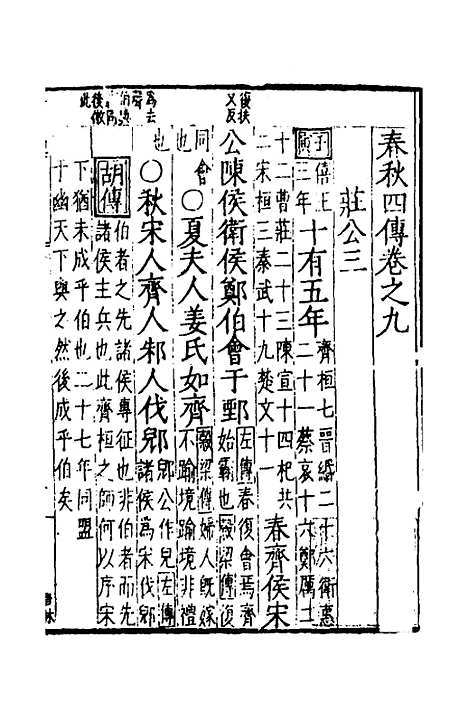 春秋四傳卷之九
莊公三
子 僖王
三年 十有五年 齊桓七晉緡二十六衛惠
二十一蔡哀十六鄭厲二
十二曹莊二十三陳宣十四杞共
二宋桓三秦武十九楚文十一 春齊侯宋
公陳侯衛侯鄭伯會于鄄 左傳春復會焉齊
始霸也穀梁傳復
同會
也 〇夏夫人姜氏如齊 穀梁傳婦人既嫁
不踰境踰境非禮
也 〇秋宋人齊人邾人伐郳 郳公作兒左傳
諸侯爲宋伐郳
胡傳 伯者之先諸侯專征也非伯者而先
諸侯主兵也此齊桓之師何以序宋
下猶未成乎伯也二十七年同盟
于幽天下與之然後成乎伯矣
復扶
又反
爲去
後倣
此